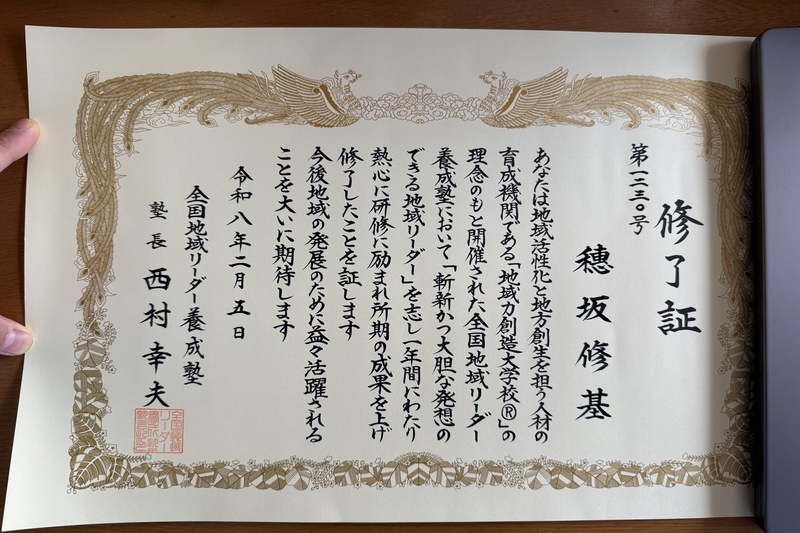 修了証
第一二三〇号
穂坂修基
あなたは地域活性化と地方創生を担う人材の
育成機関である「地域力創造大学校®」の
理念のもと開催された全国地域リーダー
養成塾において「斬新かつ大胆な発想の
できる地域リーダー」を志し一年間にわたり
熱心に研修に励まれ所期の成果を上げ
修了したことを証します
今後地域の発展のために益々活躍される
ことを大いに期待します
令和八年二月五日
全国地域リーダー養成塾
塾長 西村幸夫